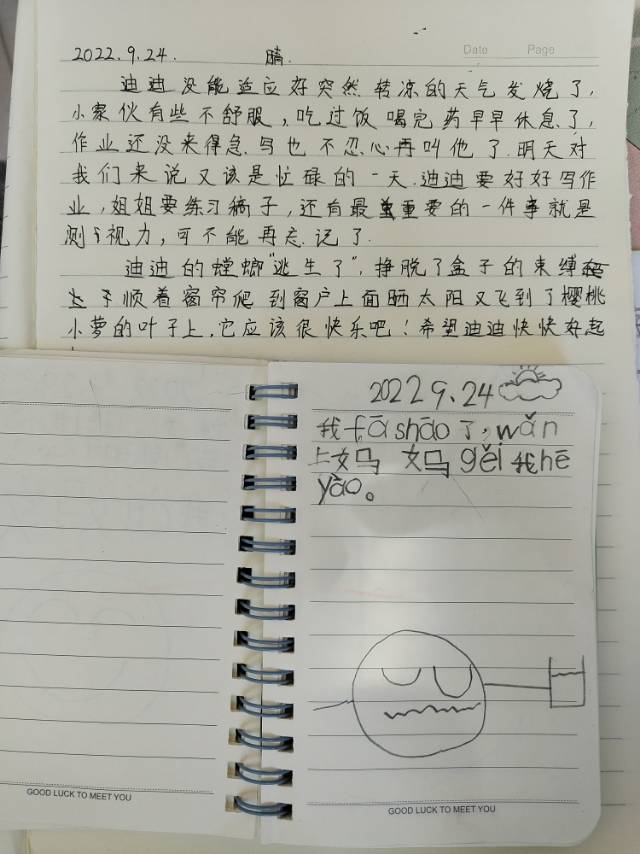 2022.9.24. 晴.
Date Page
迪迪没能适应好突然转凉的天气发烧了,
小家伙有些不舒服,吃过饭喝完药早早休息了,
作业还没来得急写也不忍心再叫他了.明天对
我们来说又该是忙碌的一天.迪迪要好好写作
业,姐姐要练习稿子,还有最重要的一件事就是
测视力,可不能再忘记了.
迪迪的螳螂"逃生了",挣脱了盒子的束缚
顺着窗帘爬到窗户上面晒太阳又飞到了樱桃
小萝的叶子上,它应该很快乐吧!希望迪迪快快好起
2022 9.24
我fā shāo了,wǎn
上妈妈gěi我hē
yào。
GOOD LUCK TO MEET YOU
GOOD LUCK TO MEET YOU